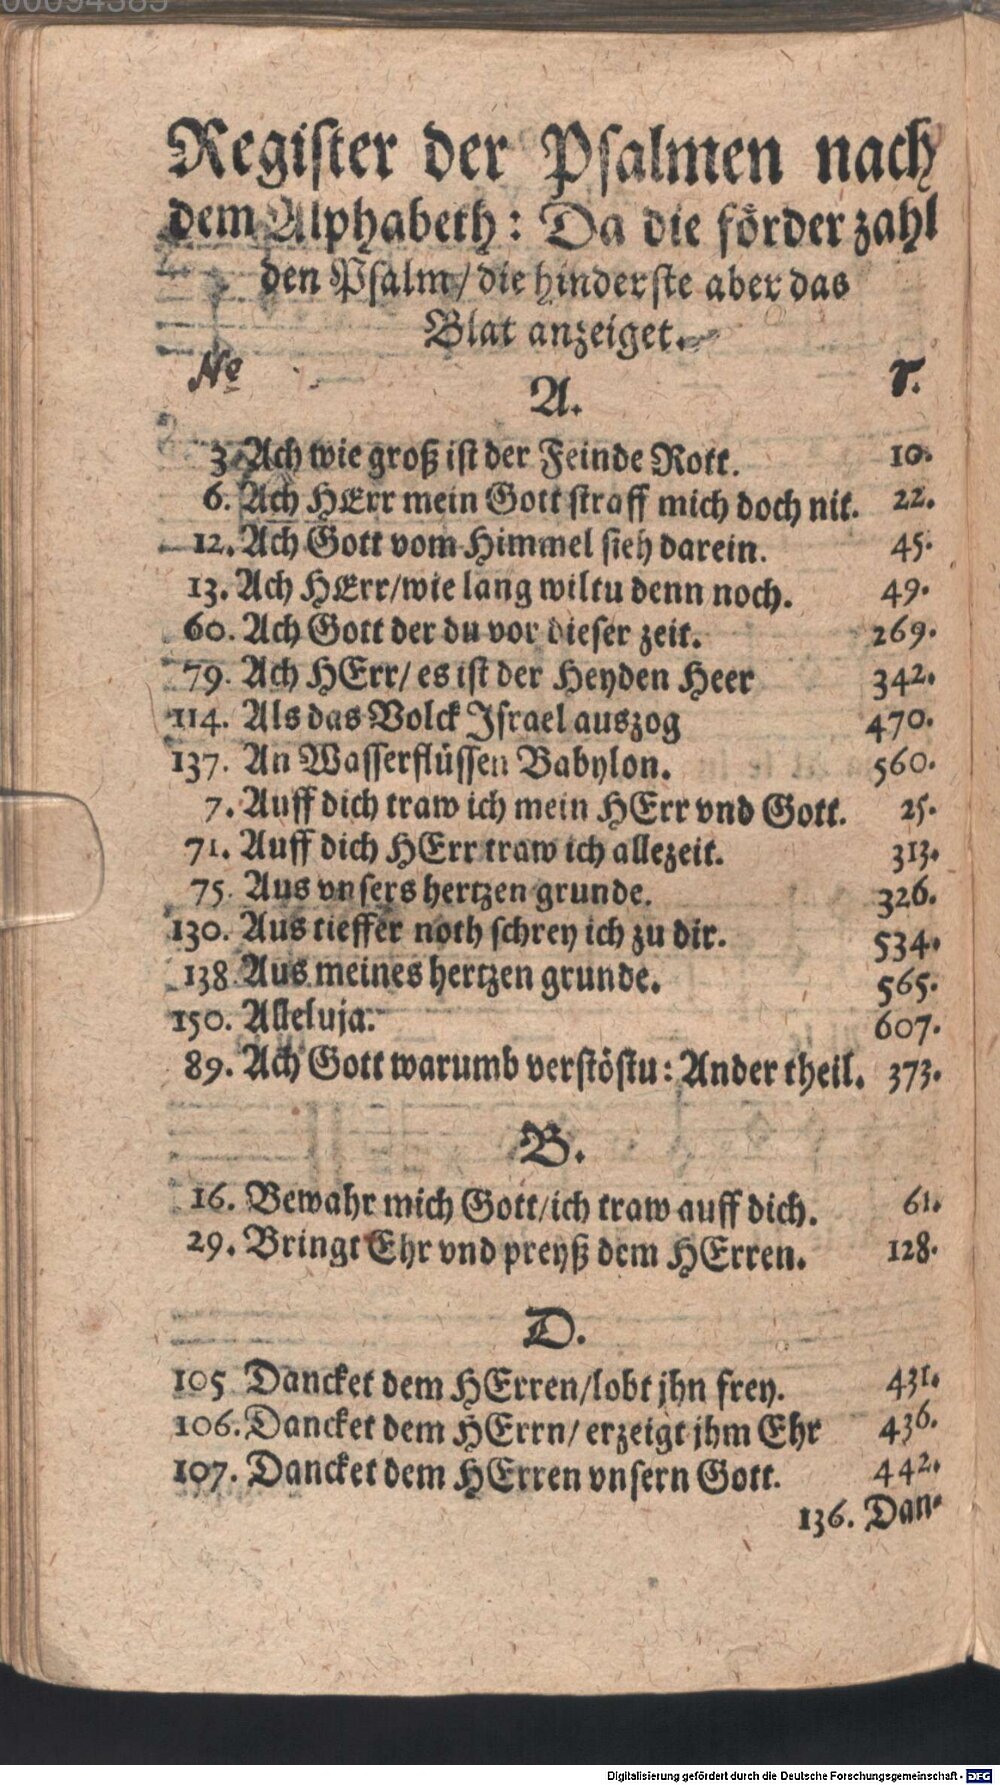 00094389
Register der Psalmen nach
dem Alphabeth: Da die förder zahl
den Psalm/ die hinderste aber das
Blat anzeiget.
No
A.
3. Ach wie groß ist der Feinde Rott. 10.
6. Ach HErr mein Gott straff mich doch nit. 22.
12. Ach Gott vom Himmel sieh darein. 45.
13. Ach HErr/wie lang wiltu denn noch. 49.
60. Ach Gott der du vor dieser zeit. 269.
79. Ach HErr/ es ist der Heyden Heer 342.
114. Als das Volck Israel auszog 470.
137. An Wasserflüssen Babylon. 560.
7. Auff dich traw ich mein HErr vnd Gott. 25.
71. Auff dich HErr traw ich allezeit. 313.
75. Aus vnsers hertzen grunde. 326.
130. Aus tieffer noth schrey ich zu dir. 534.
138. Aus meines hertzen grunde. 565.
150. Alleluja. 607.
89. Ach Gott warumb verstöstu: Ander theil. 373.
B.
16. Bewahr mich Gott/ich traw auff dich. 61.
29. Bringt Ehr vnd preyß dem HErren. 128.
D.
105 Dancket dem HErren/lobt jhn frey. 431.
106. Dancket dem HErrn/ erzeigt jhm Ehr 436.
107. Dancket dem HErren vnsern Gott. 442.
136. Dan-
Digitalisierung gefördert durch die Deutsche Forschungsgemeinschaft - DFG